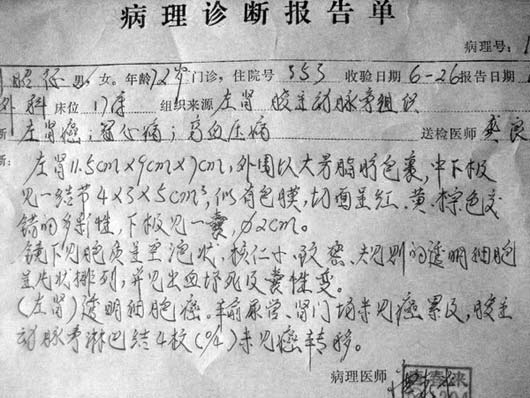 病理诊断报告单
病理号：1
男，女。年龄72岁门诊，住院号353收验日期6-26报告日期
外科床位17床 组织来源左肾 腹主动脉旁组织
左肾癌；冠心病；高血压病 送检医师龚良
断：
左肾11.5cm×9cm×7cm，外围以大男脂肪包裹，中下极
见一结节4×3×5cm³，似有包膜，切面呈红、黄、棕色交
错的多彩性，下极见一囊，φ2cm。
镜下见胞质呈空泡状，核仁小、致密、规则的透明细胞
呈片状排列，并见出血坏死及囊性变。
(左肾)透明细胞癌。输尿管、肾门均未见癌累及，腹主
动脉旁淋巴结4枚(0/4)未见癌转移。
病理医师